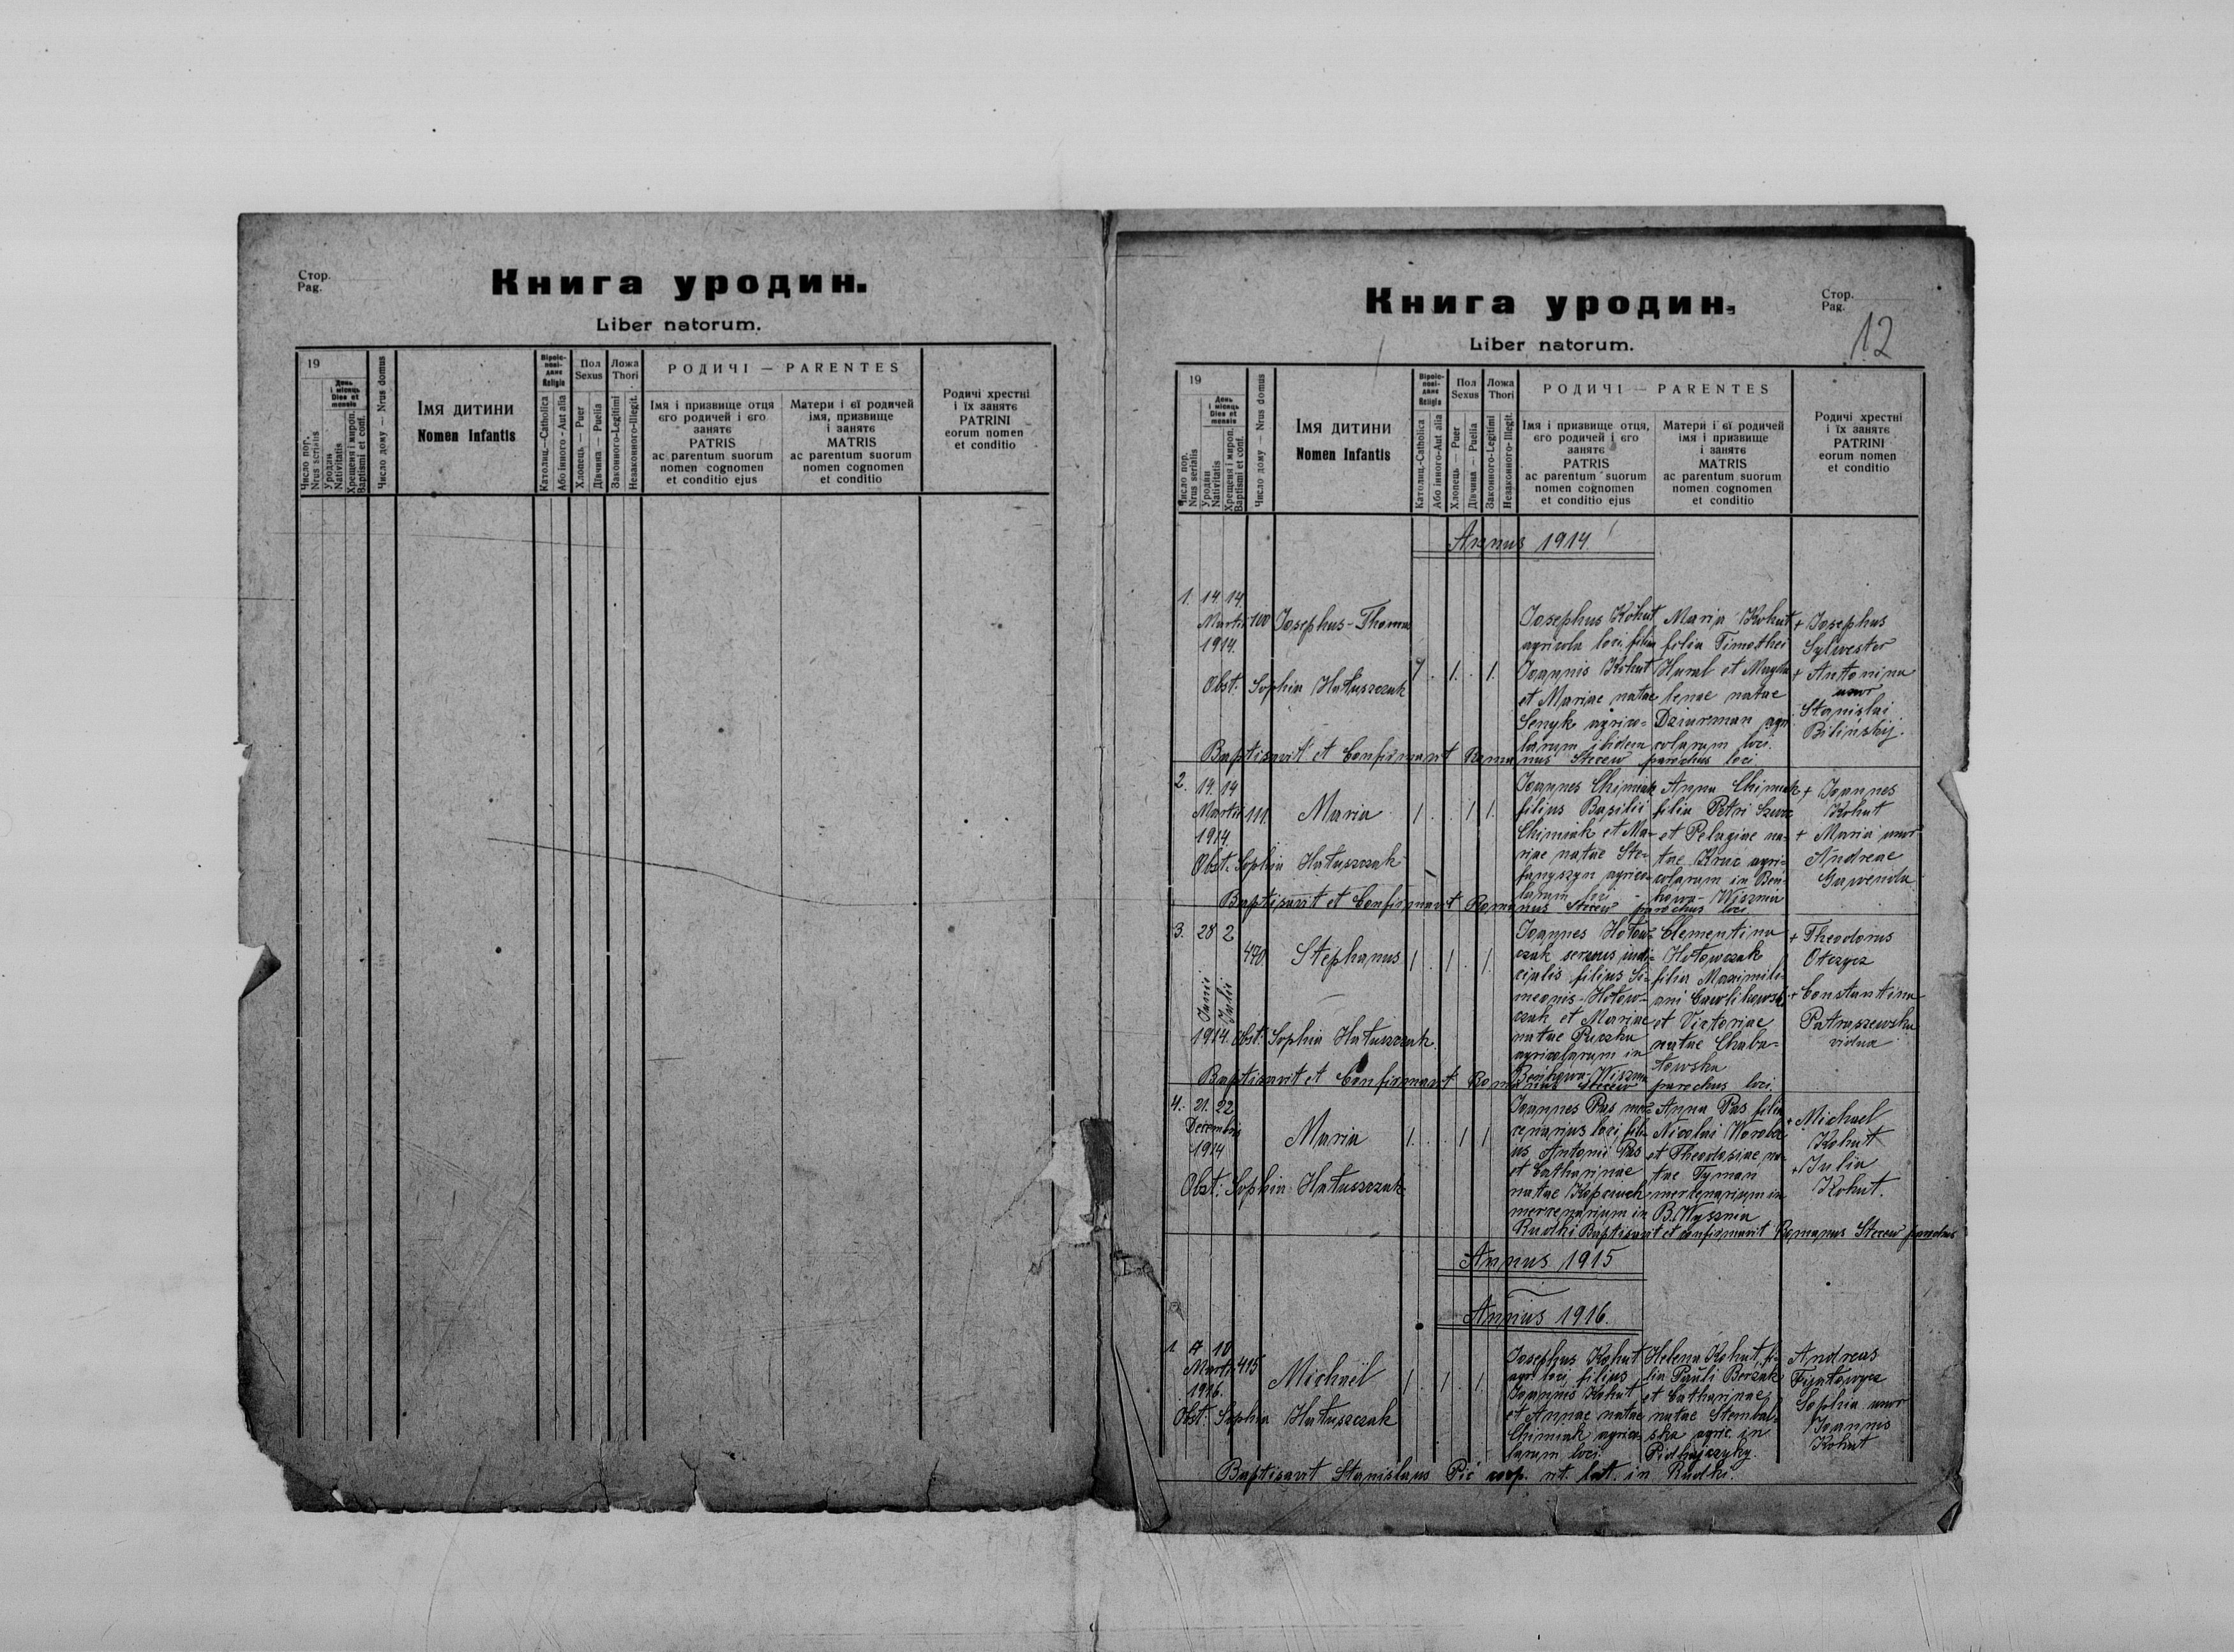 Стор.
Pag.
Книга уродин.
Liber natorum.
19
Число пор.
Nrus serialis
День
і місяць
Dies et
mensis
Уродин
Nativitatis
Хрещеня і миропом.
Baptismi et conf.
Число дому — Nrus domus
Імя дитини
Nomen Infantis
Religia
Католиц.—Catholica
Або інного - Aut alia
Пол
Sexus
Хлопець — Puer
Дівчина — Puella
Ложа
Thori
Законного-Legitimi
Незаконного-Illegit.
РОДИЧІ — PARENTES
Імя і призвище отця
єго родичей і єго
занятє
PATRIS
ac parentum suorum
nomen cognomen
et conditio ejus
Матери і єї родичей
імя, призвище
і занятє
MATRIS
ac parentum suorum
nomen cognomen
et conditio
Родичі хрестні
і їх занятє
PATRINI
eorum nomen
et conditio
Книга уродин.
Liber natorum.
Стор.
Pag.
12
19
Число пор.
Nrus serialis
День
і місяць
Dies et
mensis
Уродин
Nativitatis
Хрещеня і миропом.
Baptismi et conf.
Число дому — Nrus domus
Імя дитини
Nomen Infantis
Religia
Католиц.-Catholica
Або інного-Aut alia
Пол
Sexus
Хлопець — Puer
Дівчина — Puella
Ложа
Thori
Законного-Legitimi
Незаконного-Illegit.
РОДИЧІ — PARENTES
Імя і призвище отця,
єго родичей і єго
занятє
PATRIS
ac parentum suorum
nomen cognomen
et conditio ejus
Матери і єї родичей
імя і призвище
і занятє
MATRIS
ac parentum suorum
nomen cognomen
et conditio
Родичі хрестні
і їх занятє
PATRINI
eorum nomen
et conditio
Annus 1914.
1. 14. 14.
Martii 100 Josephus-Thomas
1914.
Obst. Sophia Hatuszczak
1. 1. 1.
Josephus Kohut
agricola loci, filius
Joannis Kohut
et Mariae natae
Senyk agrico-
larum ibidem
Maria Kohut
filia Timothei
Hural et Magda-
lenae natae
Dziurman agri-
colarum loci.
+ Josephus
Sylwester
+ Antonina
uxor
Stanislai
Bilinskij.
Baptisavit et Confirmavit Romanus Stecew parochus loci.
2. 14. 14
Martii 111. Maria
1914.
Obst. Sophia Hatuszczak
1. 1 1.
Joannes Chimiak
filius Basilii
Chimiak et Ma-
riae natae Ste-
fanyszyn agrico-
larum loci
Anna Chimiak
filia Petri
et Pelagiae na-
tae Kruc agri-
colarum in Beń-
kowa-Wisznia
+ Joannes
Kohut
+ Maria uxor
Andreae
Gawenda
Baptisavit et Confirmavit Romanus Stecew parochus loci.
3. 28 2
470. Stephanus
Junii
Julii
1914. Obst: Sophia Hatuszczak.
1. 1. 1.
Joannes Hotow-
czak servus judi-
cialis filius Si-
meonis Hotow-
czak et Mariae
natae Puszka
agricolarum in
Beńkowa-Wisznia
Clementina
Hotowczak
filia Maximili-
ani
et Victoriae
natae Chaba-
towska
+ Theodorus
+ Constantina
Patraszewska
vidua
Baptisavit et Confirmavit Romanus Stecew parochus loci.
4. 21. 22
Decembris
1914
Maria
Obst: Sophia Hatuszczak
1. 1 1
Joannes Pas mer-
cenarius loci, fili-
us Antonii Pas
et Catharinae
natae
mercenarium in
Rudki
Anna Pas filia
Nicolai
et Theodosiae na-
tae Tyman
mercenarium in
B. Wysznia
+ Michael
Kohut
+ Julia
Kohut.
Baptisavit et confirmavit Romanus Stecew parochus
Annus 1915
Annus 1916.
1 10
Martii 415 Michaël
1916.
Obst: Sophia Hatuszczak
1. 1. 1.
Josephus Kohut
agr. loci, filius
Joannis Kohut
et Annae natae
Chimiak agrico-
larum loci.
Helena Kohut, fi-
lia Pauli
et Catharinae,
natae Stembal-
ska agric. in
Pidhajczyky.
Andreas
Sophia uxor
Joannis
Kohut
Baptisavit Stanislaus Pić coop. rit. lat. in Rudki.